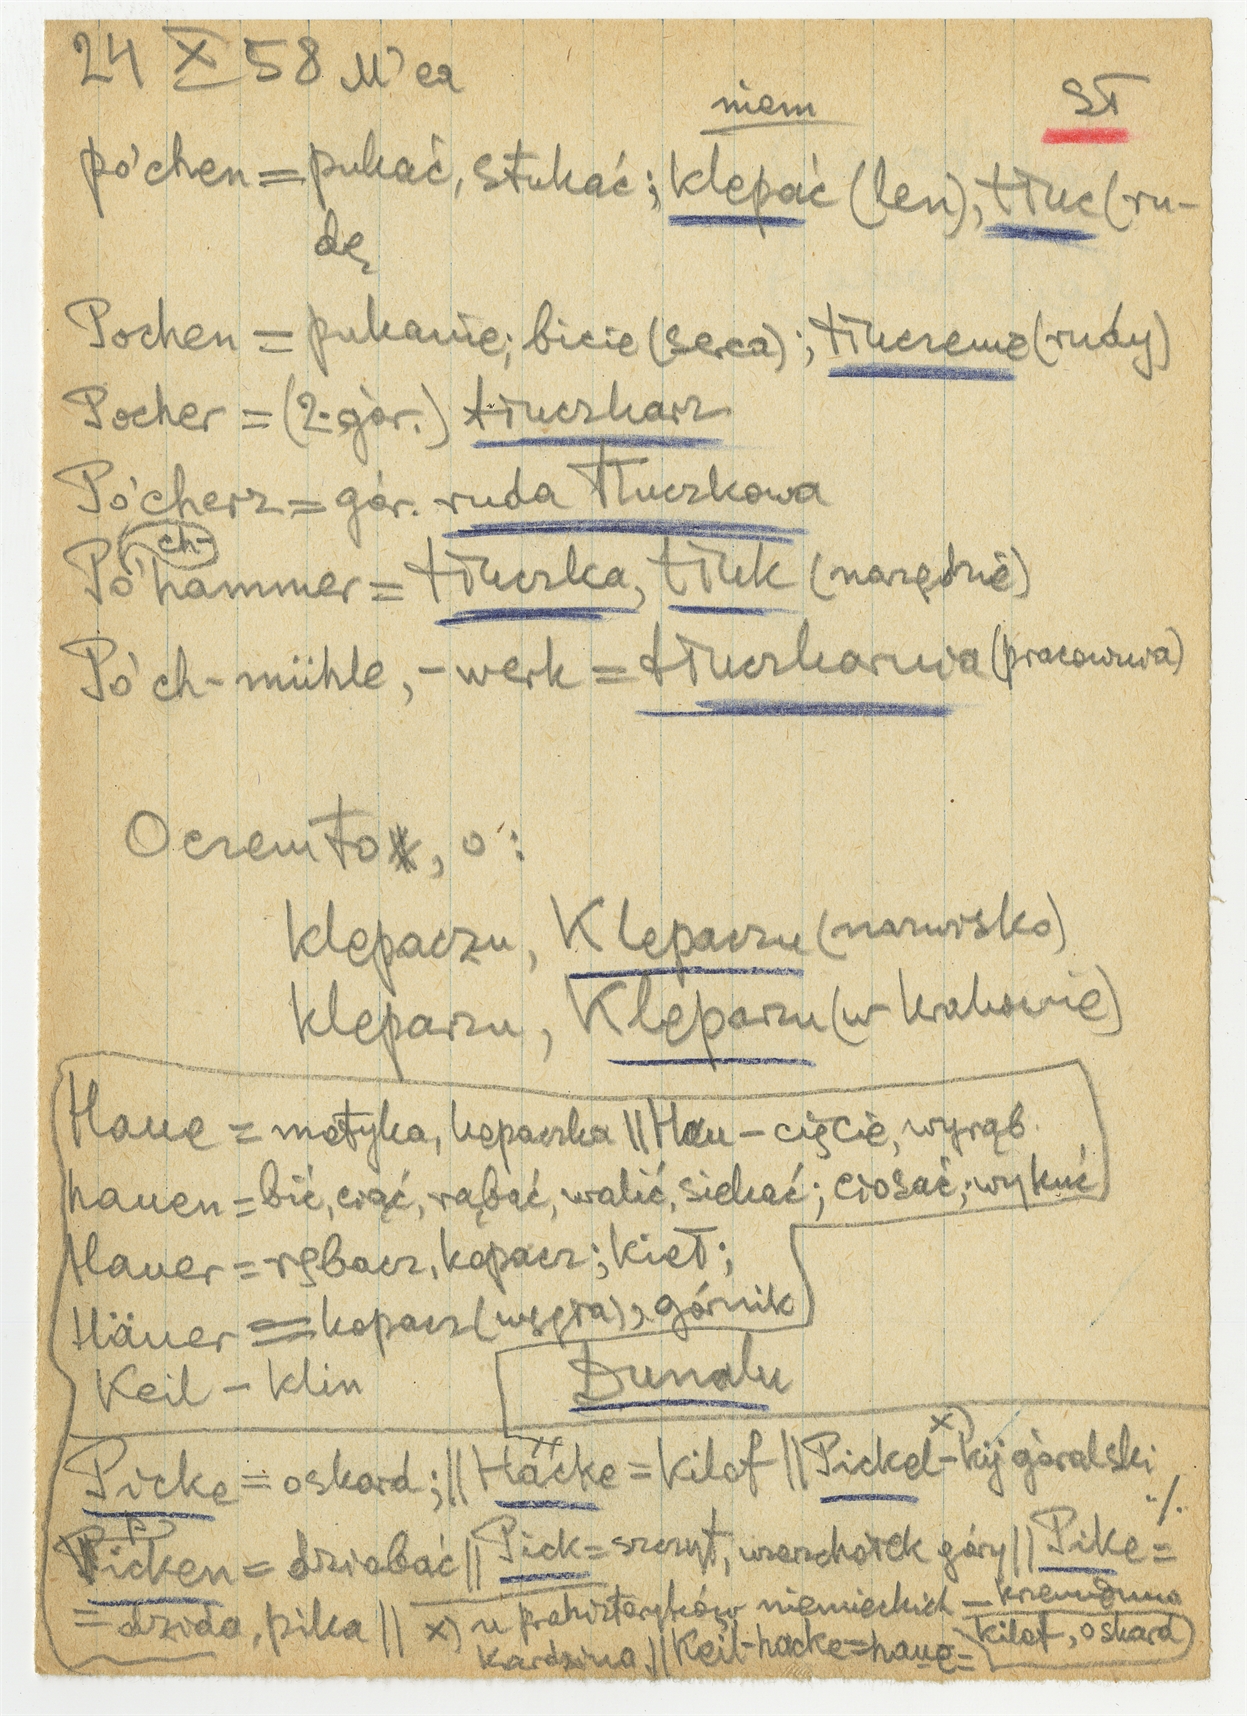 24 X 58 M'cz
niem
SŁ
po'chen = pukać, stukać; klepać (len), tłuc (ru-
dę
Pochen = pukanie; bicie (serca); tłuczenie (rudy)
Pocher = (2. gór.) tłuczkarz
Po'cherz = gór. ruda tłuczkowa
ch-
Po'hammer = tłuczka, tłuk (narzędzie)
Po'ch-mühle, -werk = tłuczkarnia (pracownia)
Oczemło, o:
klepaczu, Klepaczu (nazwisko)
kleparzu, Kleparzu (w Krakowie)
Haue = motyka, kopaczka || Hau - cięcie, wyrąb.
hauen = bić, ciąć, rąbać, walić, siekać; ciosać; wykuć
Hauer = rębacz, kopacz; kieł;
Häuer = kopacz (węgla), górnik
Keil - klin
Dunalu
Picke = oskard; || Häcke = kilof || Pickel x) - kij góralski
./.
picken = dziobać || Pick = szczyt, wierzchołek góry || Pike =
= dzida, pika || x) u prahistoryków niemieckich - krzemienna
kardzina || Keil-hacke = haue = kilof, oskard)